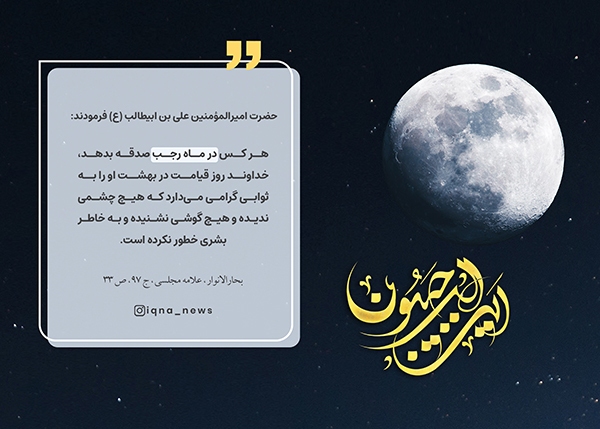 حضرت امیرالمؤمنین علی بن ابیطالب (ع) فرمودند:
هر کس در ماه رجب صدقه بدهد،
خداوند روز قیامت در بهشت او را به
ثوابی گرامی می‌دارد که هیچ چشمی
ندیده و هیچ گوشی نشنیده و به خاطر
بشری خطور نکرده است.
بحارالانوار، علامه مجلسی، ج ۹۷، ص ۳۳
iqna_news
این الرجبیون